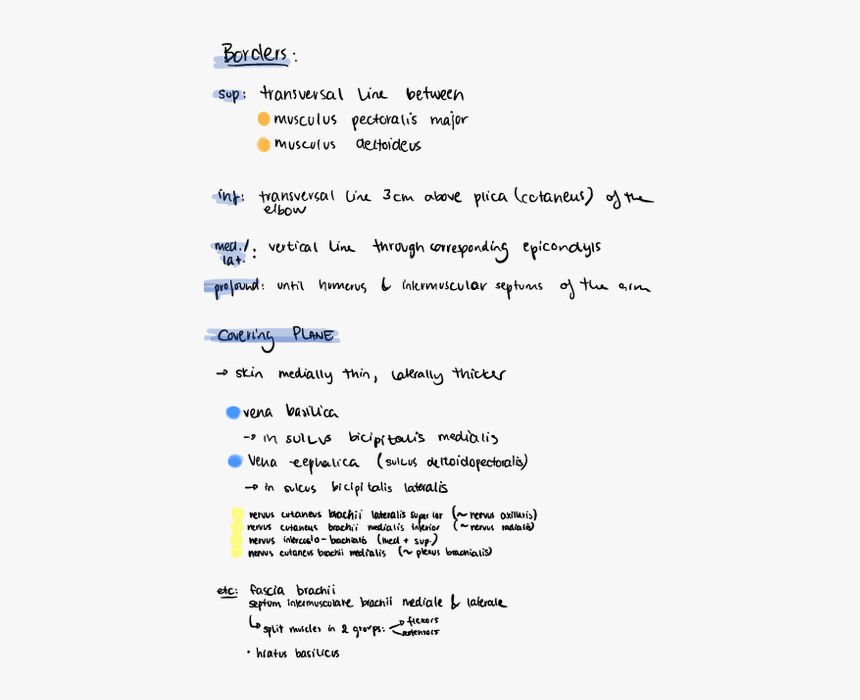 Borders:
sup: transversal line between
musculus pectoralis major
musculus deltoideus
inf: transversal line 3cm above plica (cotaneus) of the
elbow
med./
lat.: vertical line through corresponding epicondyls
profound: until humerus & intermuscular septums of the arm
Covering PLANE
→ skin medially thin, laterally thicker
vena basilica
→ in sulcus bicipitalis medialis
vena cephalica (sulcus deltoidopectoralis)
→ in sulcus bicipitalis lateralis
nervus cutaneus brachii lateralis superior (~ nervus axillaris)
nervus cutaneus brachii medialis inferior (~ nervus radialis)
nervus intercosto-brachialis (med + sup.)
nervus cutaneus brachii medialis (~ plexus brachialis)
etc: fascia brachii
septum intermusculare brachii mediale & laterale
↳ split muscles in 2 groups: → flexors
→ extensors
• hiatus basilicus